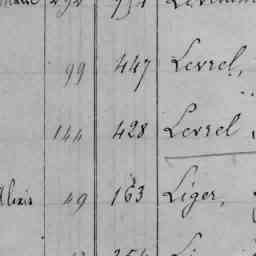 99 447 Levrel,
144 428 Levrel
Alexis 49 163 Liger,